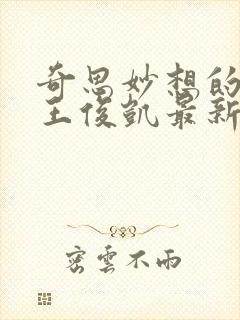 奇思妙想的
王俊凯最新
密雲不雨